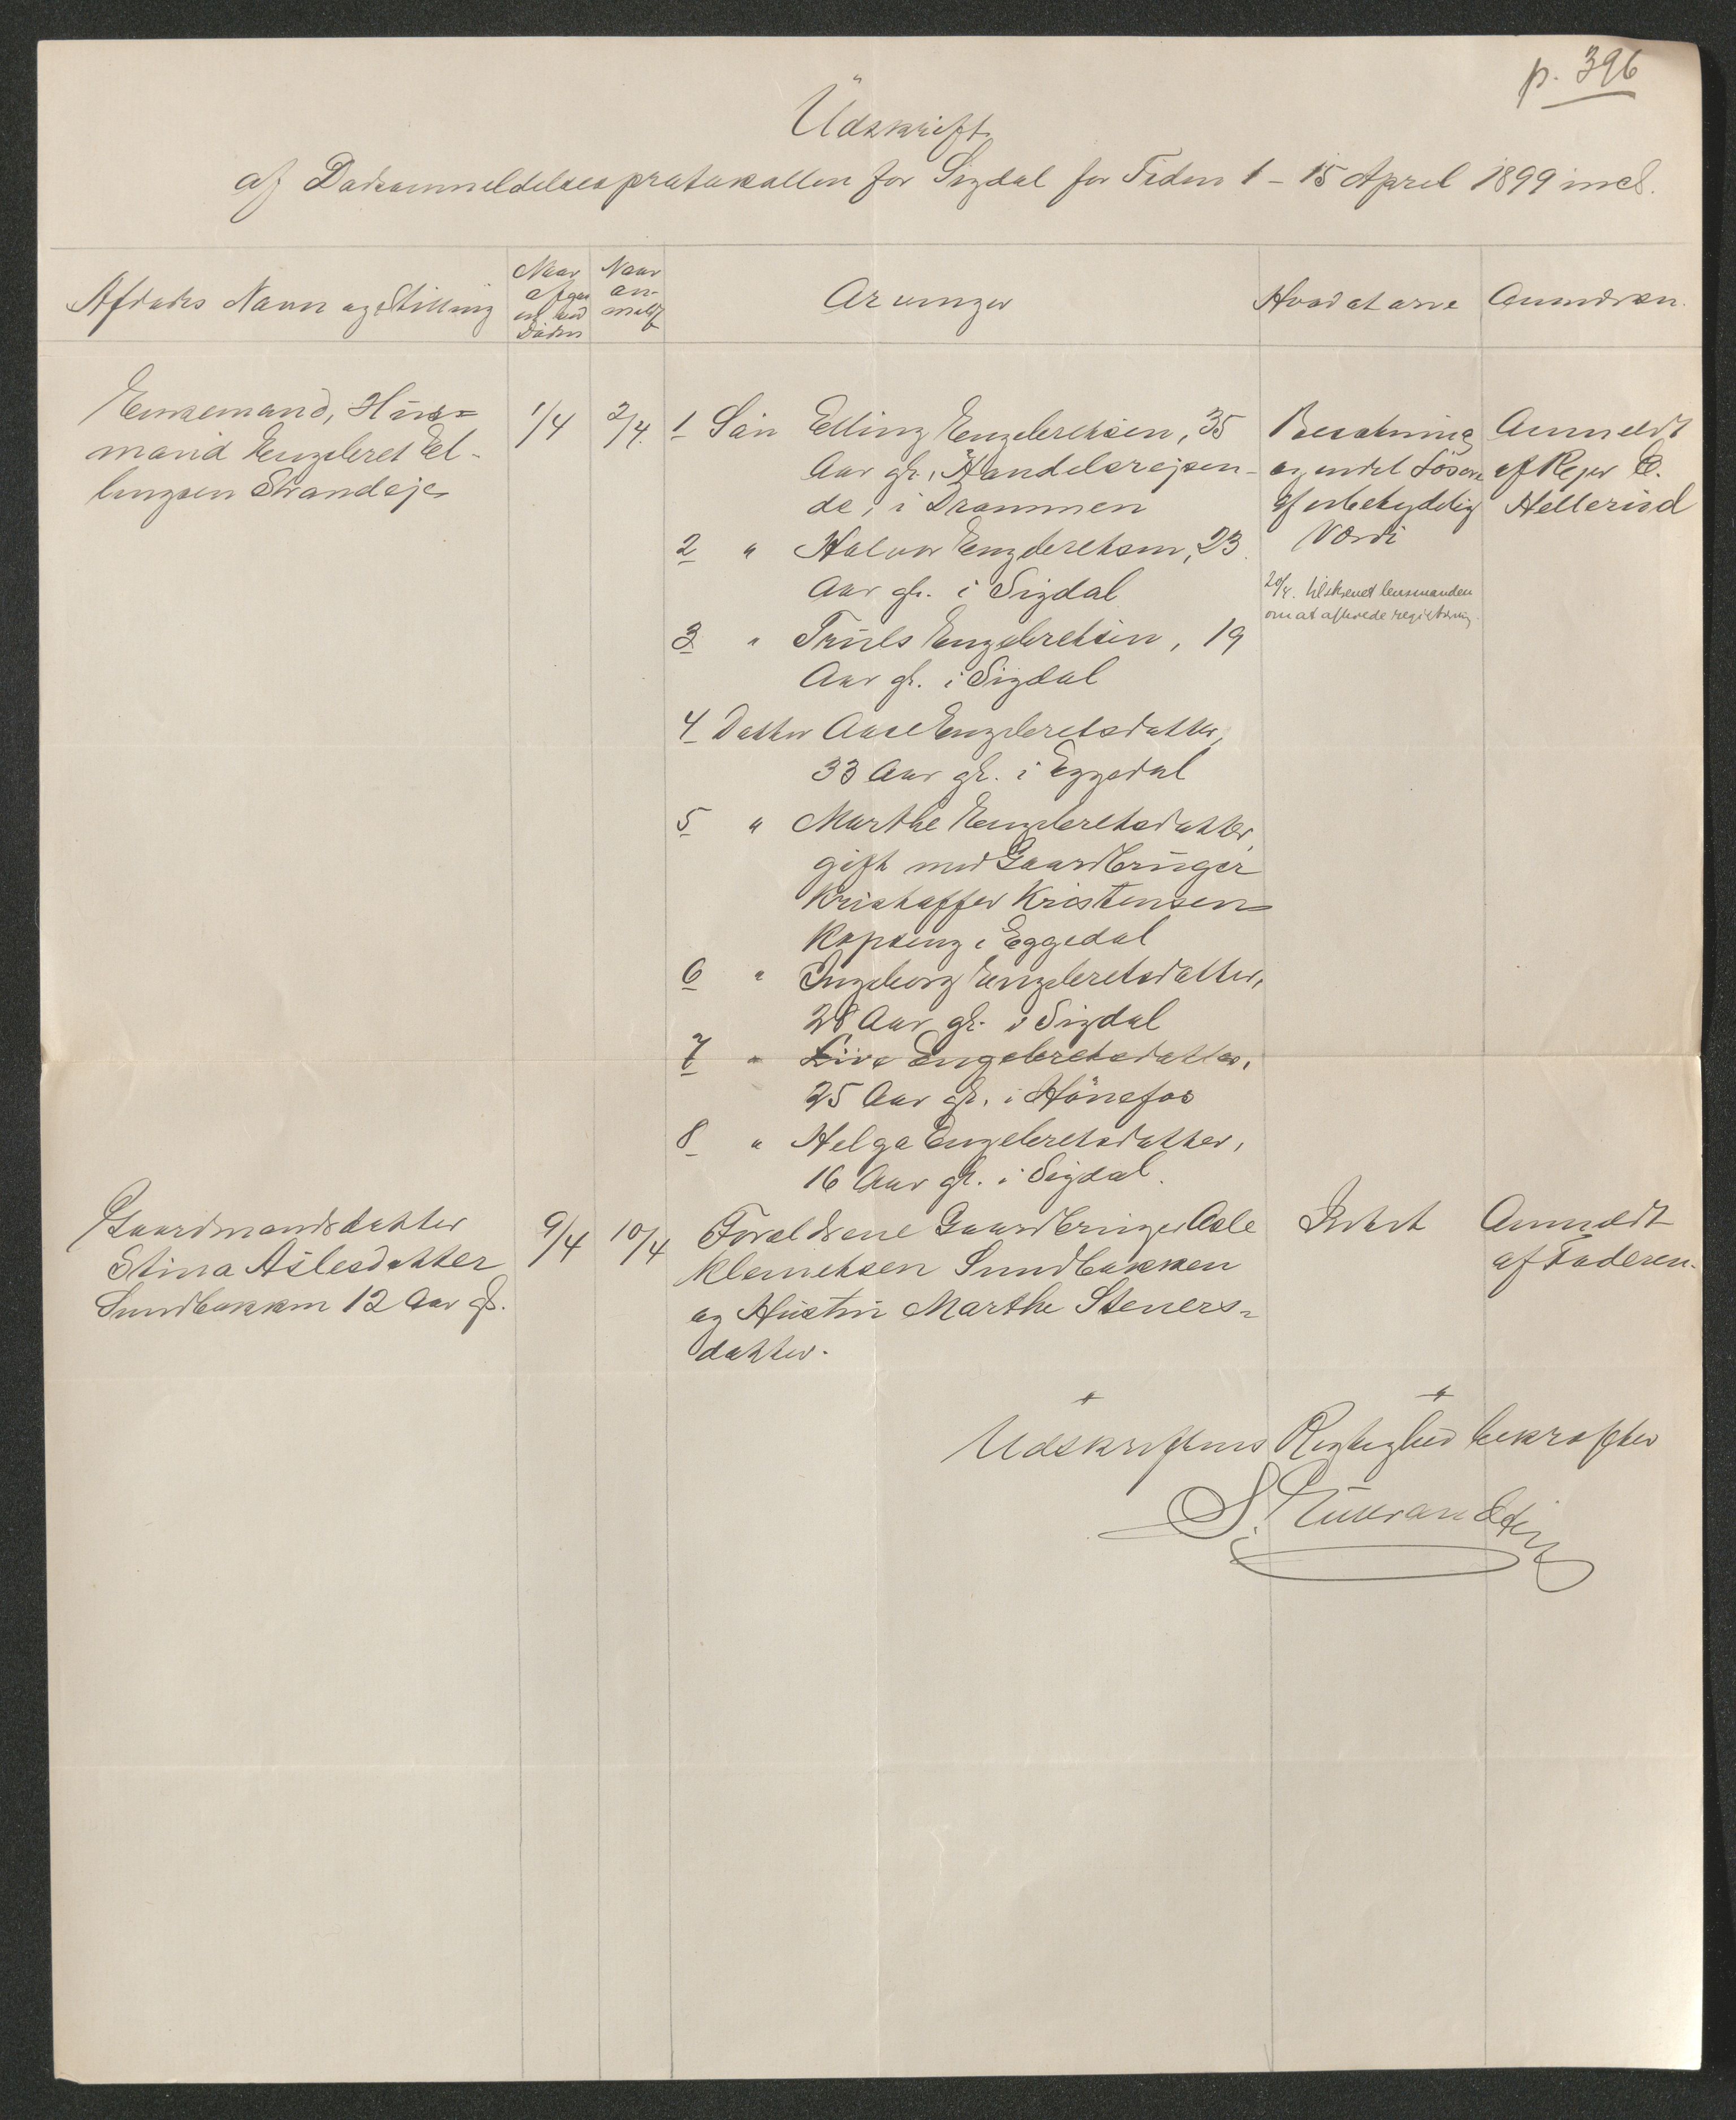 p. 396
Udskrift
af Dødsanmeldelsesprotokollen for Sigdal for Tiden 1 - 15 April 1899 incl.
Afdødes Navn og Stilling
Naar
afgaa
en ved
Døden
Naar
an-
meldt
Arvinger
Hvad at arve
Anmærkn.
Enkemand, Hus=
mand Engebret El-
lingsen Strandeje
1/4
2/4
1 Søn Elling Engebretsen, 35
Aar gl., Handelsrejsen-
de, i Drammen
2 " Halvor Engebretsen, 23
Aar gl. i Sigdal
3 " Truls Engebretsen, 19
Aar gl. i Sigdal
4 Datter Aase Engebretsdatter,
33 Aar gl. i Eggedal
5 " Marthe Engebretsdatter,
gift med Gaardbruger
Kristoffer Kristensen
Kopseng i Eggedal
6 " Ingeborg Engebretsdatter,
28 Aar gl. i Sigdal
7 " Live Engebretsdatter,
25 Aar gl. i Hönefos
8 " Helga Engebretsdatter,
16 Aar gl. i Sigdal.
Besætning
og endel Løsøre
af ubetydelig
Værdi
20/4. tilskrevet lensmanden
om at afholde registrering.
Anmeldt
af Rejer E.
Hellerud
Gaardmandsdatter
Stina Aslesdatter
Sundbakken 12 Aar gl.
9/4
10/4
Forældrene Gaardbruger Asle
Klemetsen Sundbakken
og Hustru Marthe Steners=
datter.
Intet
Anmeldt
af Faderen.
Udskriftens Rigtighed bekræftes
S.